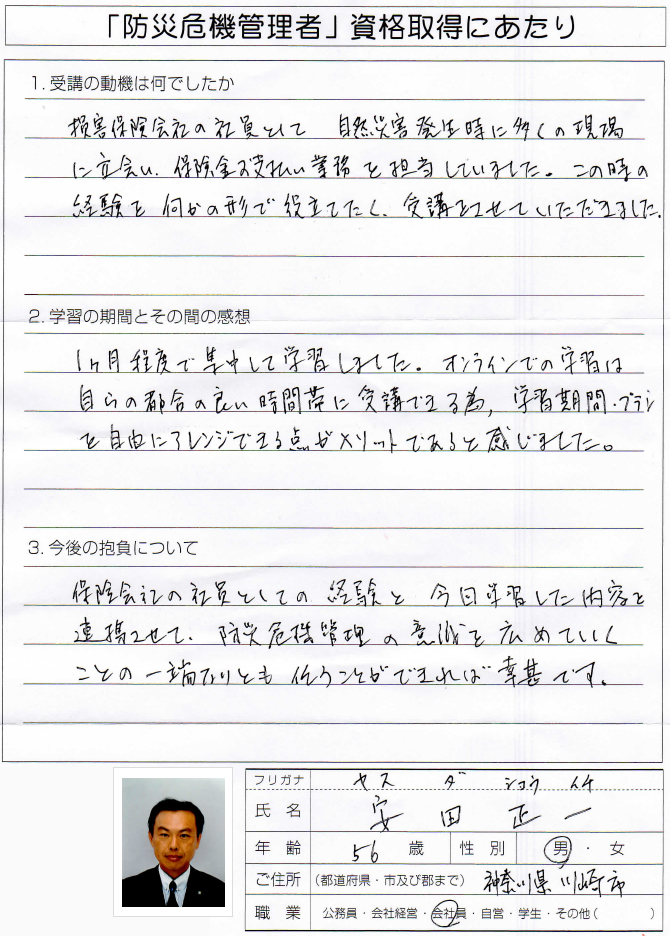 「防災危機管理者」資格取得にあたり
1. 受講の動機は何でしたか
損害保険会社の社員として 自然災害発生時に多くの現場
に立会い、保険金お支払い業務を担当していました。この時の
経験を何かの形で役立てたく、受講させていただきました。
2. 学習の期間とその間の感想
1ヶ月程度で集中して学習しました。オンラインでの学習は
自らの都合の良い時間帯に受講できる為、学習期間・プラン
を自由にアレンジできる点がメリットであると感じました。
3. 今後の抱負について
保険会社の社員としての経験と今回学習した内容を
連携させて、防災危機管理の意識を広めていく
ことの一端なりとも担うことができれば幸甚です。
フリガナ ヤス ダ ショウ イチ
氏 名 安 田 正 一
年 齢 56 歳 性 別 男 ・ 女
ご住所 (都道府県・市及び郡まで) 神奈川県川崎市
職 業 公務員・会社経営・会社員・自営・学生・その他( )